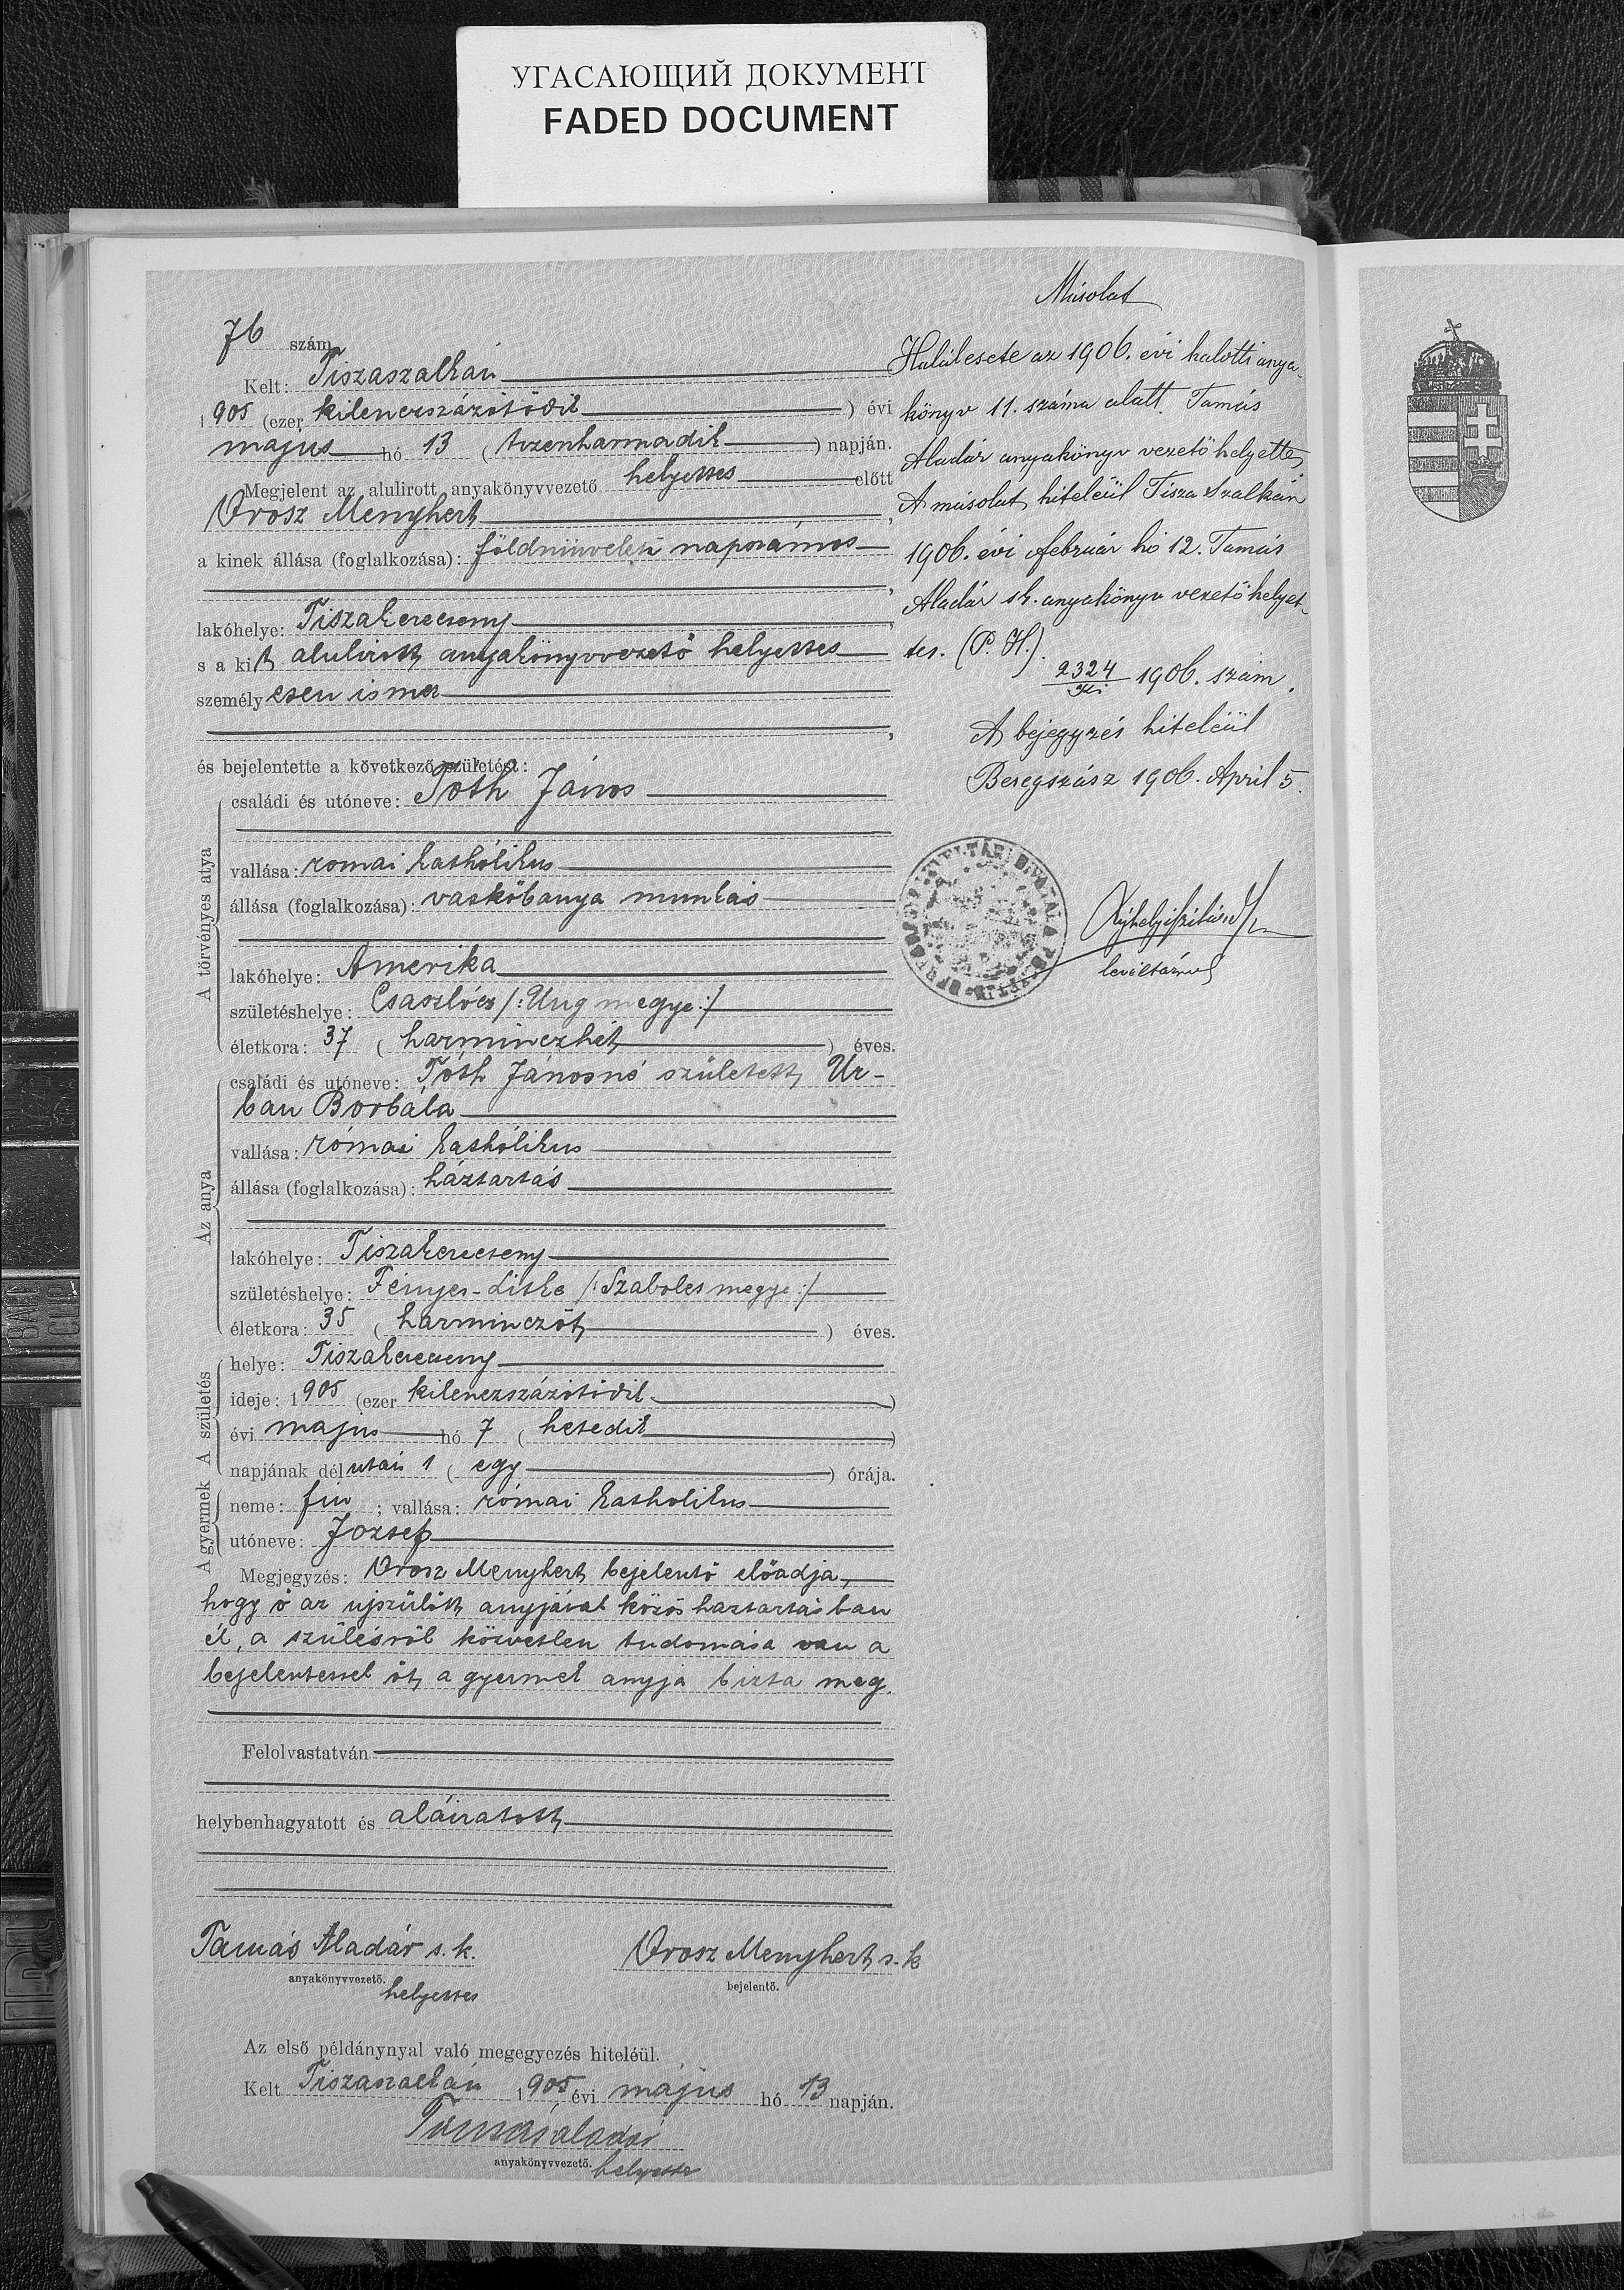 УГАСАЮЩИЙ ДОКУМЕНТ
FADED DOCUMENT
76 szám
Kelt: Tiszaszalkán
1905 (ezer kilenczszázötödik ) évi
május hó 13 ( tizenharmadik ) napján.
Megjelent az alulirott anyakönyvvezető helyettes előtt
Orosz Menyhert ,
a kinek állása (foglalkozása): földmivelési napszámos
,
lakóhelye: Tiszakerecseny ,
s a kit alulirott anyakönyvvezető helyettes
személyesen ismer
,
és bejelentette a következő születést:
A törvényes atya
családi és utóneve: Tóth János
vallása: romai katholikus
állása (foglalkozása): vaskőbanya munkás
lakóhelye: Amerika
születéshelye: Csaszlócz /: Ung megye :/
életkora: 37 ( harminczhét ) éves.
Az anya
családi és utóneve: Tóth Jánosné született Ur-
ban Borbála
vallása: római katholikus
állása (foglalkozása): háztartás
lakóhelye: Tiszakerecseny
születéshelye: Fényes-Litke /: Szabolcs megye :/
életkora: 35 ( harminczöt ) éves.
A születés
helye: Tiszakerecseny
ideje: 1905 (ezer kilenczszázötödik )
évi majus hó 7 ( hetedik )
napjának délután 1 ( egy ) órája.
A gyermek
neme: fiu ; vallása: római katholikus
utóneve: József
Megjegyzés: Orosz Menyhert bejelentő előadja,
hogy ő az ujszülött anyjával közös haztartásban
él, a szülésről közvetlen tudomása van a
bejelentessel őt a gyermek anyja bizta meg.
Felolvastatván
helybenhagyatott és aláiratott
Tamás Aladár s.k.
anyakönyvvezető.
helyettes
Orosz Menyhert s.k
bejelentő.
Az első példánynyal való megegyezés hiteléül.
Kelt Tiszaszalkán 1905 évi május hó 13 napján.
Tamás Aladár
anyakönyvvezető. helyettes
Másolat
Halálesete az 1906. évi halotti anya-
könyv 11. száma alatt. Tamás
Aladár anyakönyv vezető helyettes.
A másolat hiteléül Tisza Szalkán
1906. évi február hó 12. Tamás
Aladár sk. anyakönyv vezető helyet-
tes. (P. H.)
2324
1906. szám.
A bejegyzés hiteléül
Beregszász 1906. April 5.
levéltárnok